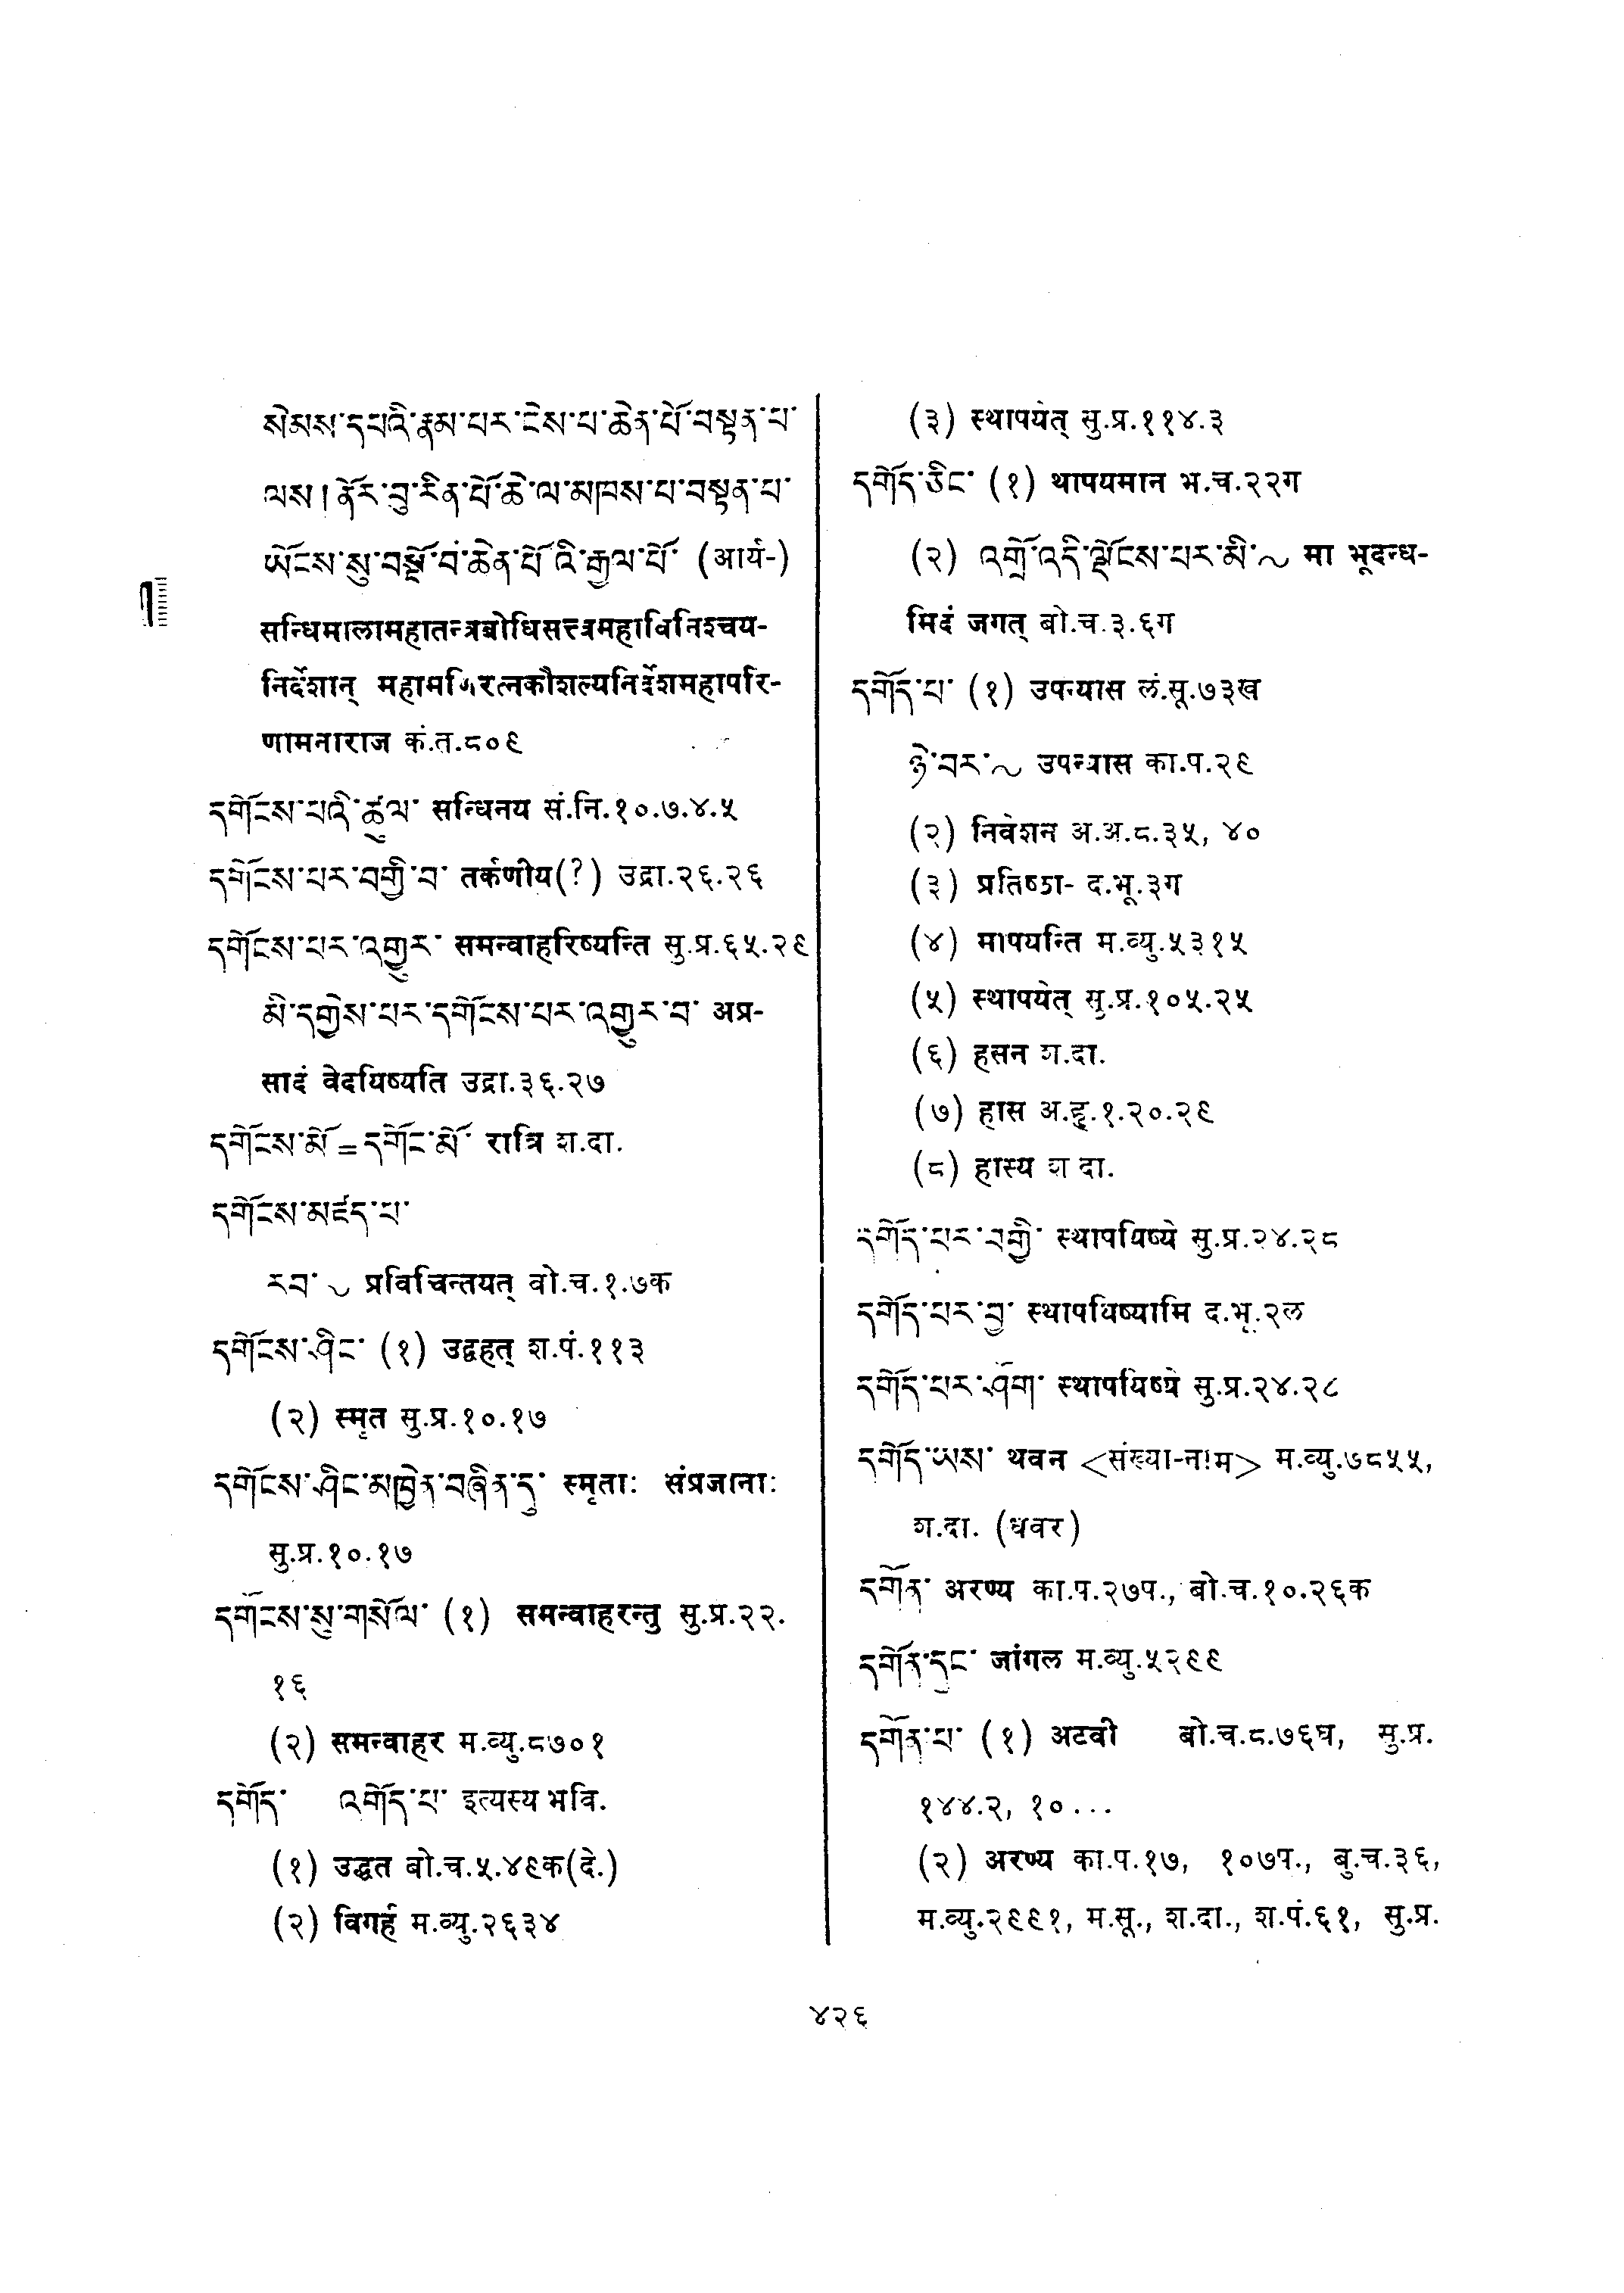 སེམས་དཔའི་རྣམ་པར་ངེས་པ་ཆེན་པོ་བསྟན་པ་
ལས། ནོར་བུ་རིན་པོ་ཆེ་ལ་མཁས་པ་བསྟན་པ་
ཡོངས་སུ་བསྔོ་བ་ཆེན་པོའི་རྒྱལ་པོ་ (आर्य-)
सन्धिमालामहातन्त्रबोधिसत्त्वमहाविनिश्चय-
निर्देशान् महामणिरत्नकौशल्यनिर्देशमहापरि-
णामनाराज कं.त.८०९
དགོངས་པའི་ཚུལ་ सन्धिनय सं.नि.१०.७.४.५
དགོངས་པར་བགྱི་བ་ तर्कणीय(?) उद्रा.२६.२६
དགོངས་པར་འགྱུར་ समन्वाहरिष्यन्ति सु.प्र.६५.२९
མི་དགྱེས་པར་དགོངས་པར་འགྱུར་བ་ अप्र-
सादं वेदयिष्यति उद्रा.३६.२७
དགོངས་མོ་=དགོང་མོ་ रात्रि श.दा.
དགོངས་མཛད་པ་
རབ་ ~ प्रविचिन्तयत् बो.च.१.७क
དགོངས་ཤིང་ (१) उद्वहत् श.पं.११३
(२) स्मृत सु.प्र.१०.१७
དགོངས་ཤིང་མཁྱེན་བཞིན་དུ་ स्मृताः संप्रजानाः
सु.प्र.१०.१७
དགོངས་སུ་གསོལ་ (१) समन्वाहरन्तु सु.प्र.२२.
१६
(२) समन्वाहर म.व्यु.८७०१
དགོད་ འགོད་པ་ इत्यस्य भवि.
(१) उद्धत बो.च.५.४९क(दे.)
(२) विगर्ह म.व्यु.२६३४
(३) स्थापयेत् सु.प्र.११४.३
དགོད་ཅིང་ (१) थापयमान भ.च.२२ग
(२) འགྲོ་འདི་ལྡོངས་པར་མི་~ मा भूदन्ध-
मिदं जगत् बो.च.३.६ग
དགོད་པ་ (१) उपन्यास लं.सू.७३ख
ཉེ་བར་~ उपन्यास का.प.२९
(२) निवेशन अ.अ.८.३५, ४०
(३) प्रतिष्ठा- द.भू.३ग
(४) मापयन्ति म.व्यु.५३१५
(५) स्थापयेत् सु.प्र.१०५.२५
(६) हसन श.दा.
(७) हास अ.हृ.१.२०.२९
(८) हास्य श दा.
དགོད་པར་བགྱི་ स्थापयिष्ये सु.प्र.२४.२८
དགོད་པར་བྱ་ स्थापयिष्यामि द.भू.२ल
དགོད་པར་ཤོག་ स्थापयिष्ये सु.प्र.२४.२८
དགོད་ཡས་ थवन <संख्या-नाम> म.व्यु.७८५५,
श.दा. (धवर)
དགོན་ अरण्य का.प.२७प., बो.च.१०.२६क
དགོན་དུང་ जांगल म.व्यु.५२९९
དགོན་པ་ (१) अटवी बो.च.८.७६घ, सु.प्र.
१४४.२, १०...
(२) अरण्य का.प.१७, १०७प., बु.च.३६,
म.व्यु.२९९१, म.सू., श.दा., श.पं.६१, सु.प्र.
४२६